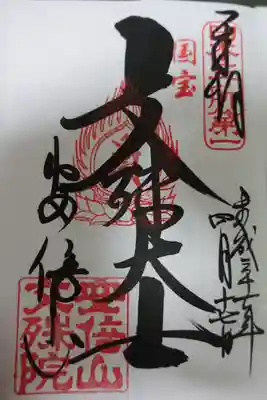 奉拝
平成三十一年
四月
国宝
文殊大士
安倍山
安倍山
文殊院